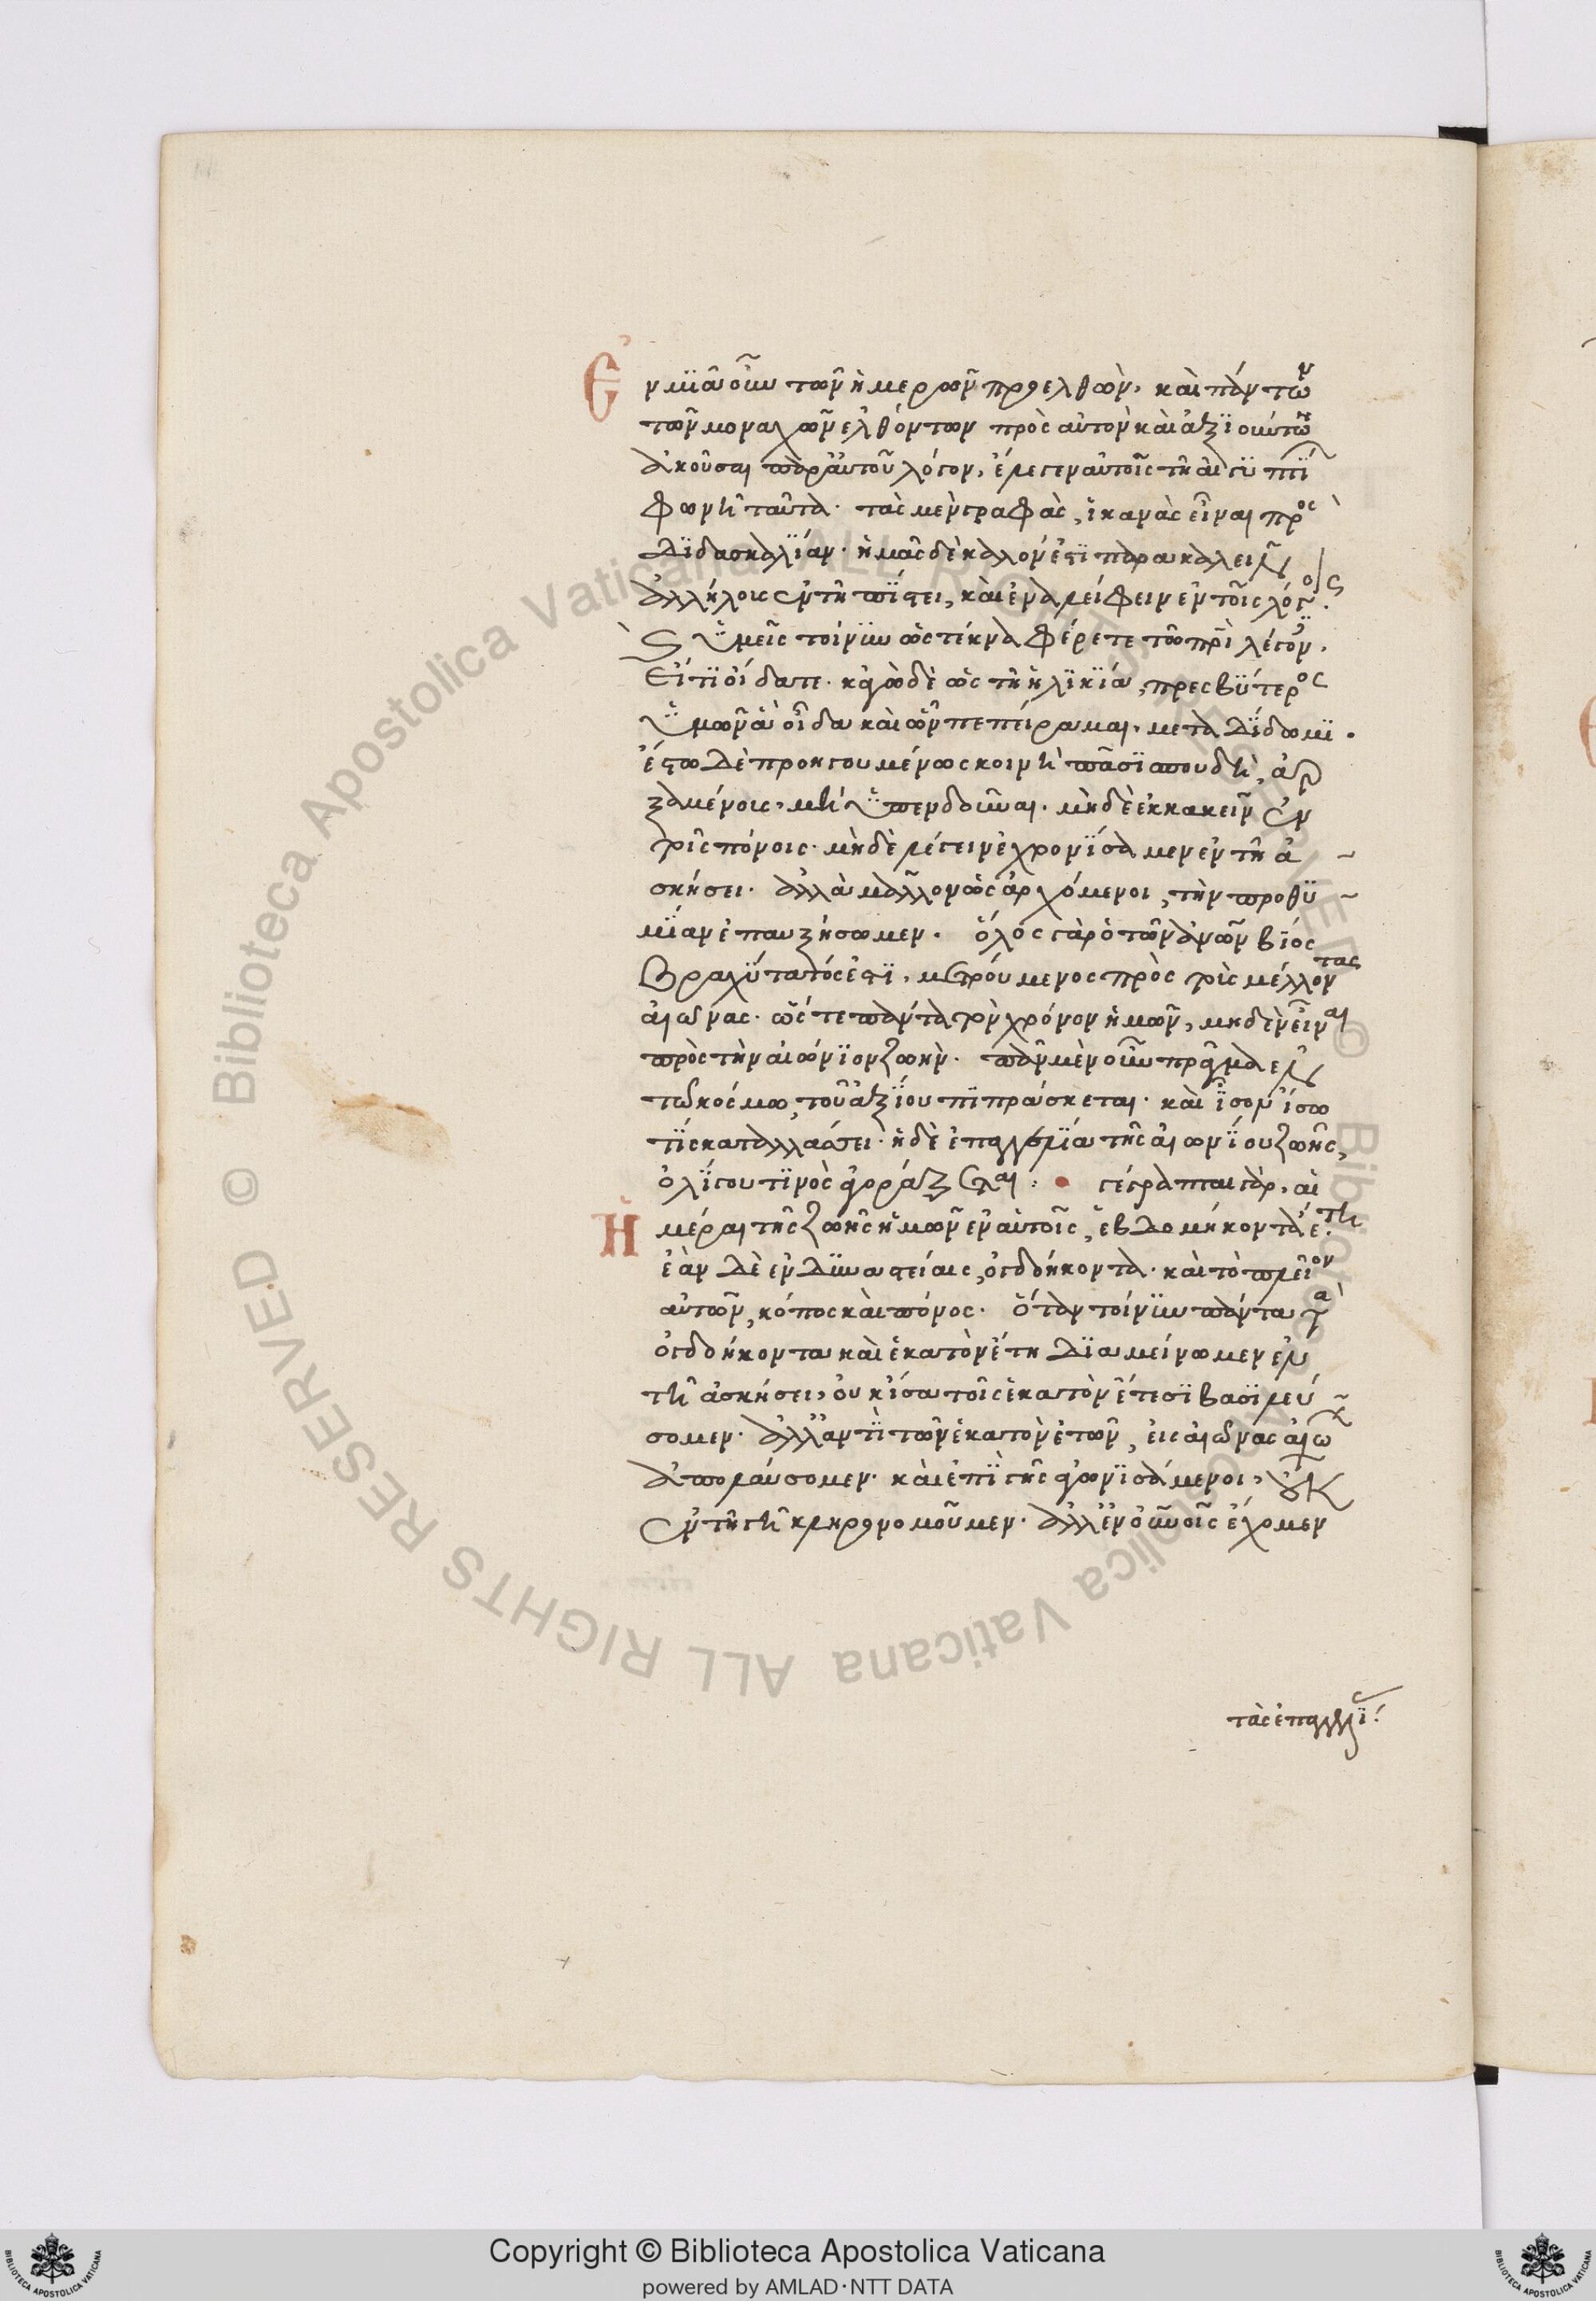 Ἐν μιᾷ οὖν τῶν ἡμερῶν προελθὼν, καὶ πάντων
τῶν μοναχῶν ἐλθόντων πρὸς αὐτὸν καὶ ἀξιούντων
ἀκοῦσαι παρ' αὐτοῦ λόγον, ἔλεγεν αὐτοῖς τῇ αἰγυπτί
φωνῇ ταῦτα· τὰς μὲν γραφὰς, ἱκανὰς εἶναι πρὸς
διδασκαλίαν· ἡμᾶς δὲ καλόν ἐστι παρακαλεῖν
ἀλλήλους ἐν τῇ πίστει, καὶ ἐναλείφειν ἐν τοῖς λόγοις.
Καὶ ὑμεῖς τοίνυν ὡς τέκνα φέρετε τῷ πρὶ λέγον,
εἴ τι οἴδατε· κἀγὼ δὲ ὡς τῇ ἡλικίᾳ, πρεσβύτερος
ὑμῶν ἃ οἶδα καὶ ὧν πεπείραμαι, μεταδίδωμι.
ἔστω δὲ προηγουμένως κοινὴ πᾶσι σπουδὴ, ἀρ
ξαμένοις, μὴ ὑπενδοῦναι· μηδὲ ἐκκακεῖν ἐν
τοῖς πόνοις· μηδὲ λέγειν ἐχρονίσαμεν ἐν τῇ ἀ
σκήσει· ἀλλὰ μᾶλλον ὡς ἀρχόμενοι, τὴν προθυ
μίαν ἐπαυξήσωμεν. ὅλος γὰρ ὁ τῶν ἀνων βίος
βραχύτατός ἐστι, μετρούμενος πρὸς τοὺς μέλλοντας
αἰῶνας· ὥστε πάντα τὸν χρόνον ἡμῶν, μηδὲν εἶναι
πρὸς τὴν αἰώνιον ζωήν. πᾶν μὲν οὖν πρᾶγμα ἐν
τῷ κόσμῳ, τοῦ ἀξίου πιπράσκεται· καὶ ἴσον ἴσῳ
τὶς καταλλάσσει· ἡ δὲ ἐπαγγελία τῆς αἰωνίου ζωῆς,
ὀλίγου τινὸς ἀγοράζεται : • γέγραπται γὰρ, αἱ
Ἡμέραι τῆς ζωῆς ἡμῶν ἐν αὐτοῖς, ἑβδομήκοντα ἔτη.
ἐὰν δὲ ἐν δυναστείαις, ὀγδοήκοντα· καὶ τὸ πλεῖον
αὐτῶν, κόπος καὶ πόνος. Ὅταν τοίνυν πάντα τὰ
ὀγδοήκοντα καὶ ἑκατὸν ἔτη διαμείνωμεν ἐν
τῇ ἀσκήσει, οὐκ ἴσα τοῖς ἑκατὸν ἔτεσι βασιλεύ
σομεν· ἀλλ' ἀντὶ τῶν ἑκατὸν ἐτῶν, εἰς αἰῶνας αἰών
ἀπολαύσομεν· καὶ ἐπὶ γῆς ἀγωνισάμενοι, οὐκ
ἐν τῇ γῇ κληρονομοῦμεν· ἀλλ' ἐν οὐνοῖς ἔχομεν
τὰς ἐπαγγελί
Copyright © Biblioteca Apostolica Vaticana
powered by AMLAD·NTT DATA